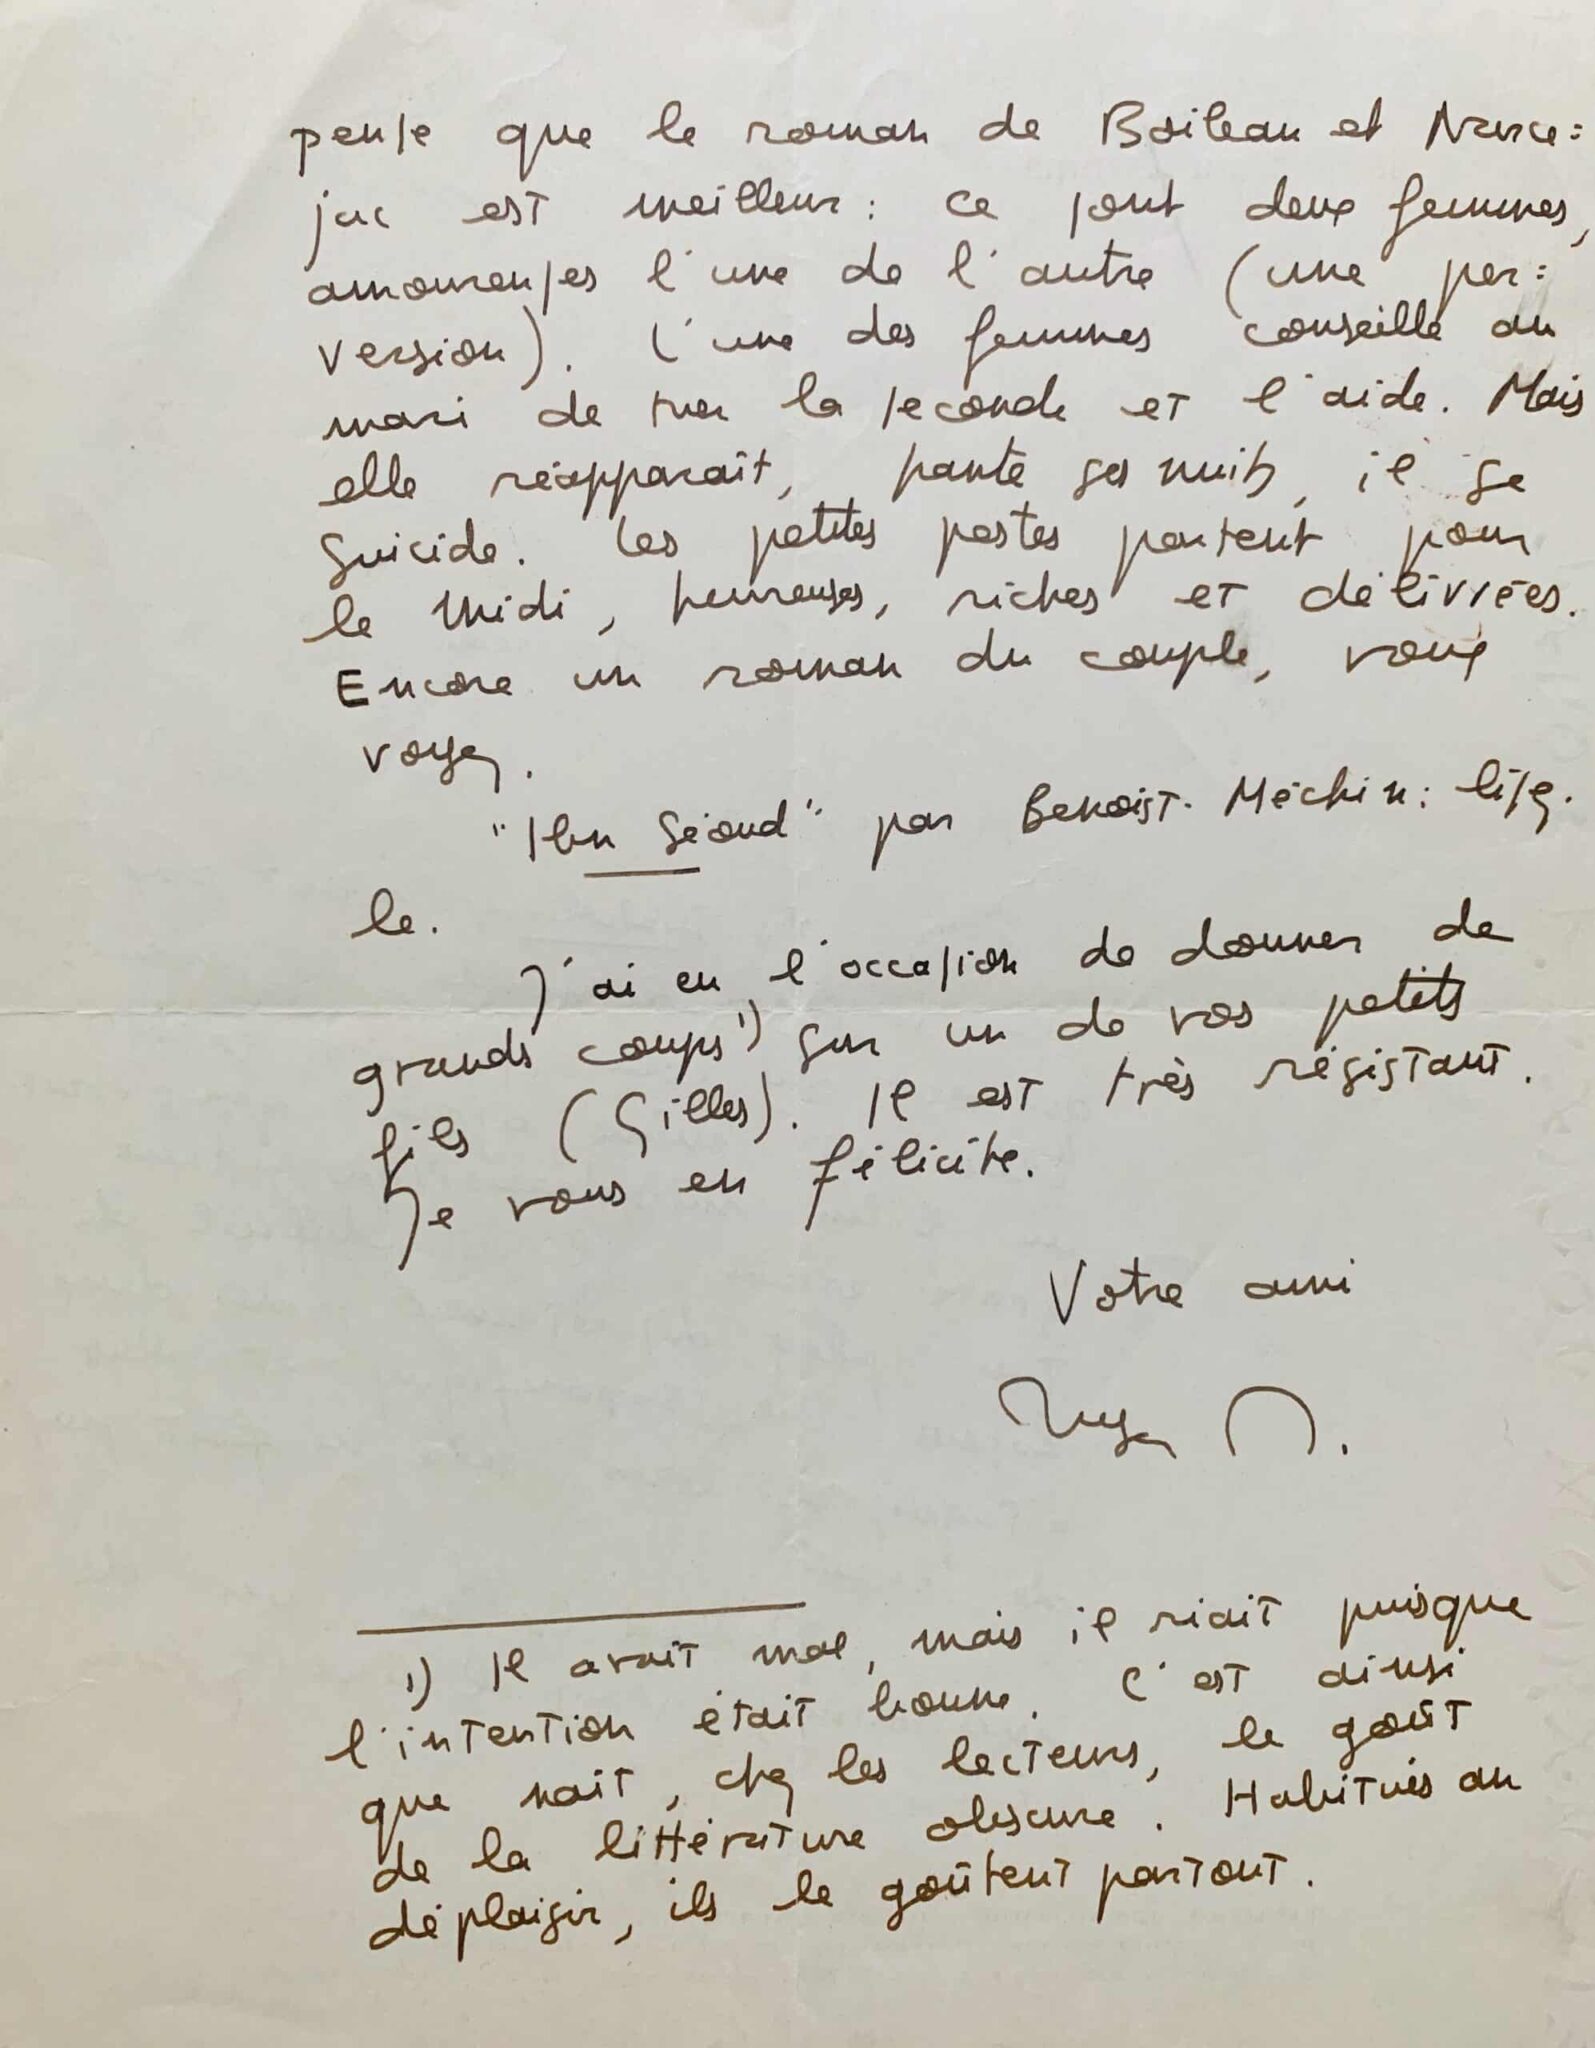 pense que le roman de Boileau et Narce=
jac est meilleur : ce sont deux femmes,
amoureuses l'une de l'autre (une per=
version). L'une des femmes conseille au
mari de tuer la seconde et l'aide. Mais
elle réapparaît, hante ses nuits, il se
suicide. Les petites pestes partent pour
le Midi, heureuses, riches et délivrées.
Encore un roman du couple, vous
voyez.
"Ibn Séoud" par Benoist-Méchin : lisez
le.
J'ai eu l'occasion de donner de
grands coups 1) sur un de vos petits
fils (Gilles). Il est très résistant.
Je vous en félicite.
Votre ami
1) Il avait mal, mais il riait puisque
l'intention était bonne. C'est ainsi
que nait, chez les lecteurs, le goût
de la littérature obscure. Habitués au
déplaisir, ils le goûtent partout.